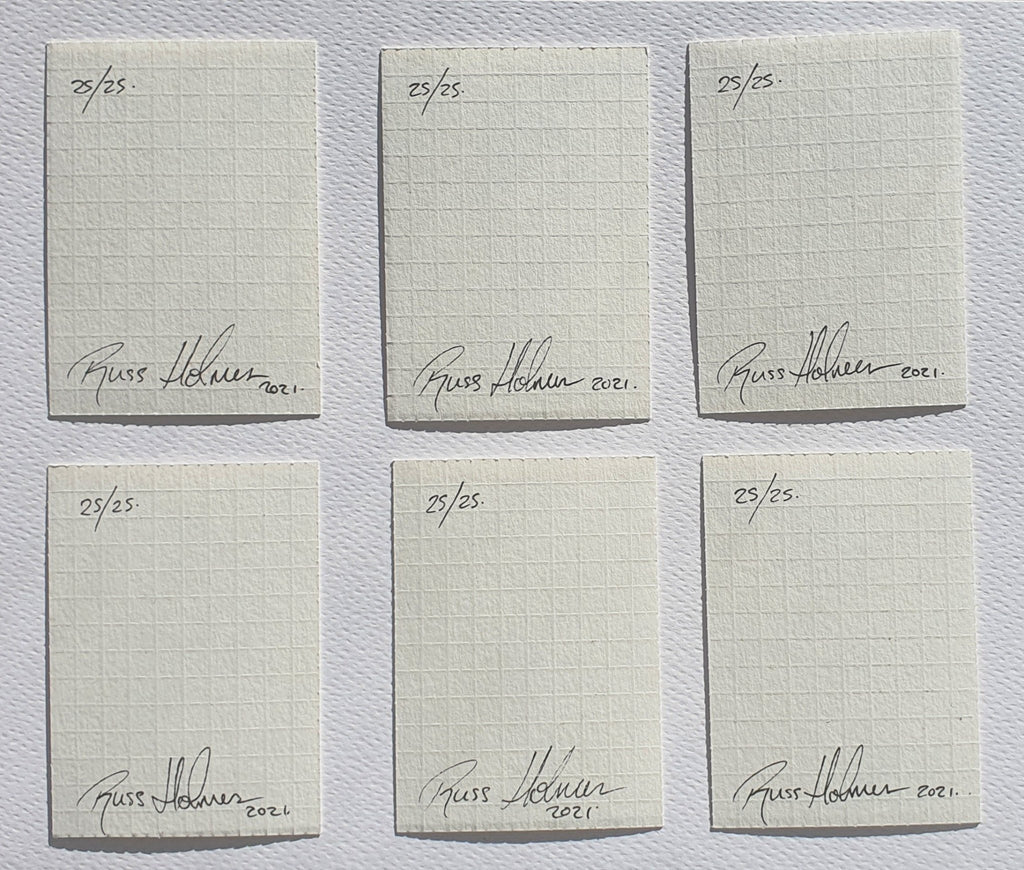 25/25.
Russ Holmes 2021.
25/25.
Russ Holmes 2021.
25/25.
Russ Holmes 2021.
25/25.
Russ Holmes 2021.
25/25.
Russ Holmes 2021.
25/25.
Russ Holmes 2021..